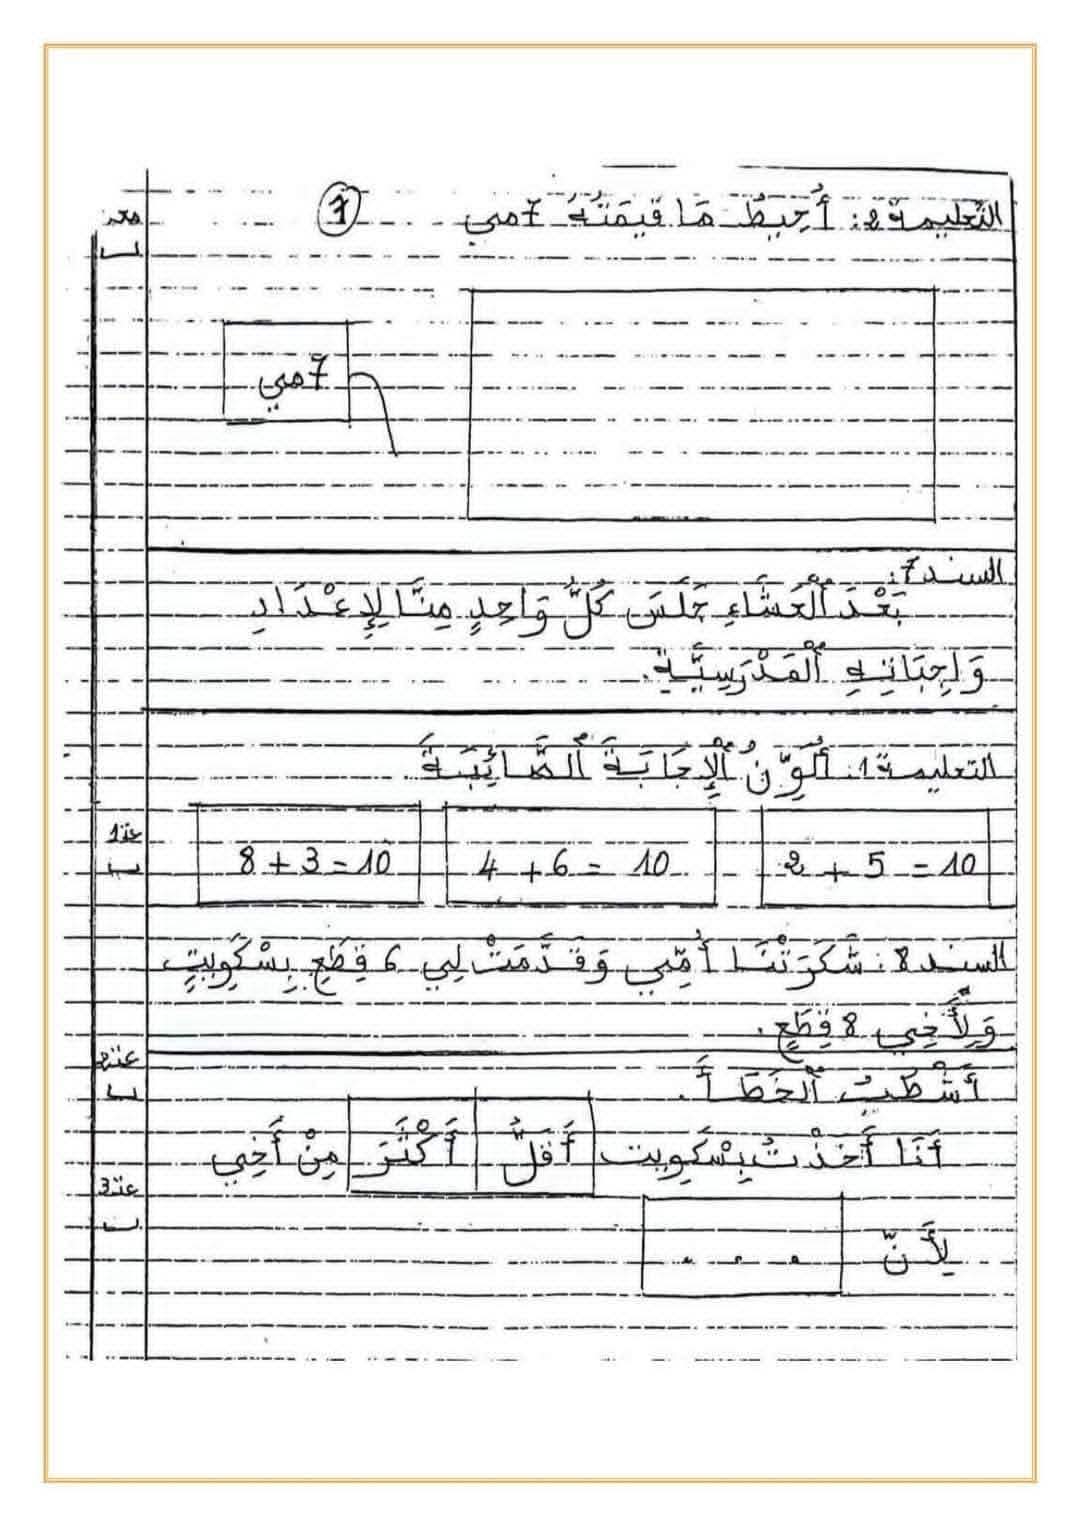 التعليمة 2: أُحِيطُ مَا قِيمَتُهُ 7 مي
1
7 مي
السند 7:
بَعْدَ الْعَشَاءِ جَلَسَ كُلُّ وَاحِدٍ مِنَّا لِإِعْدَادِ
وَاجِبَاتِهِ الْمَدْرَسِيَّةِ.
التعليمة 1: أُلَوِّنُ الْإِجَابَةَ الصَّائِبَةَ
2 + 5 = 10
4 + 6 = 10
8 + 3 = 10
السند 8: شَكَرَتْنَا أُمِّي وَقَدَّمَتْ لِي 6 قِطَعِ بِسْكَوِيتٍ
وَلِأَخِي 8 قِطَعٍ.
أَشْطُبُ الْخَطَأَ.
أَنَا أَخَذْتُ بِسْكَوِيت أَقَلَّ أَكْثَرَ مِنْ أَخِي
لِأَنّ . . .
مع1
مع2
مع3